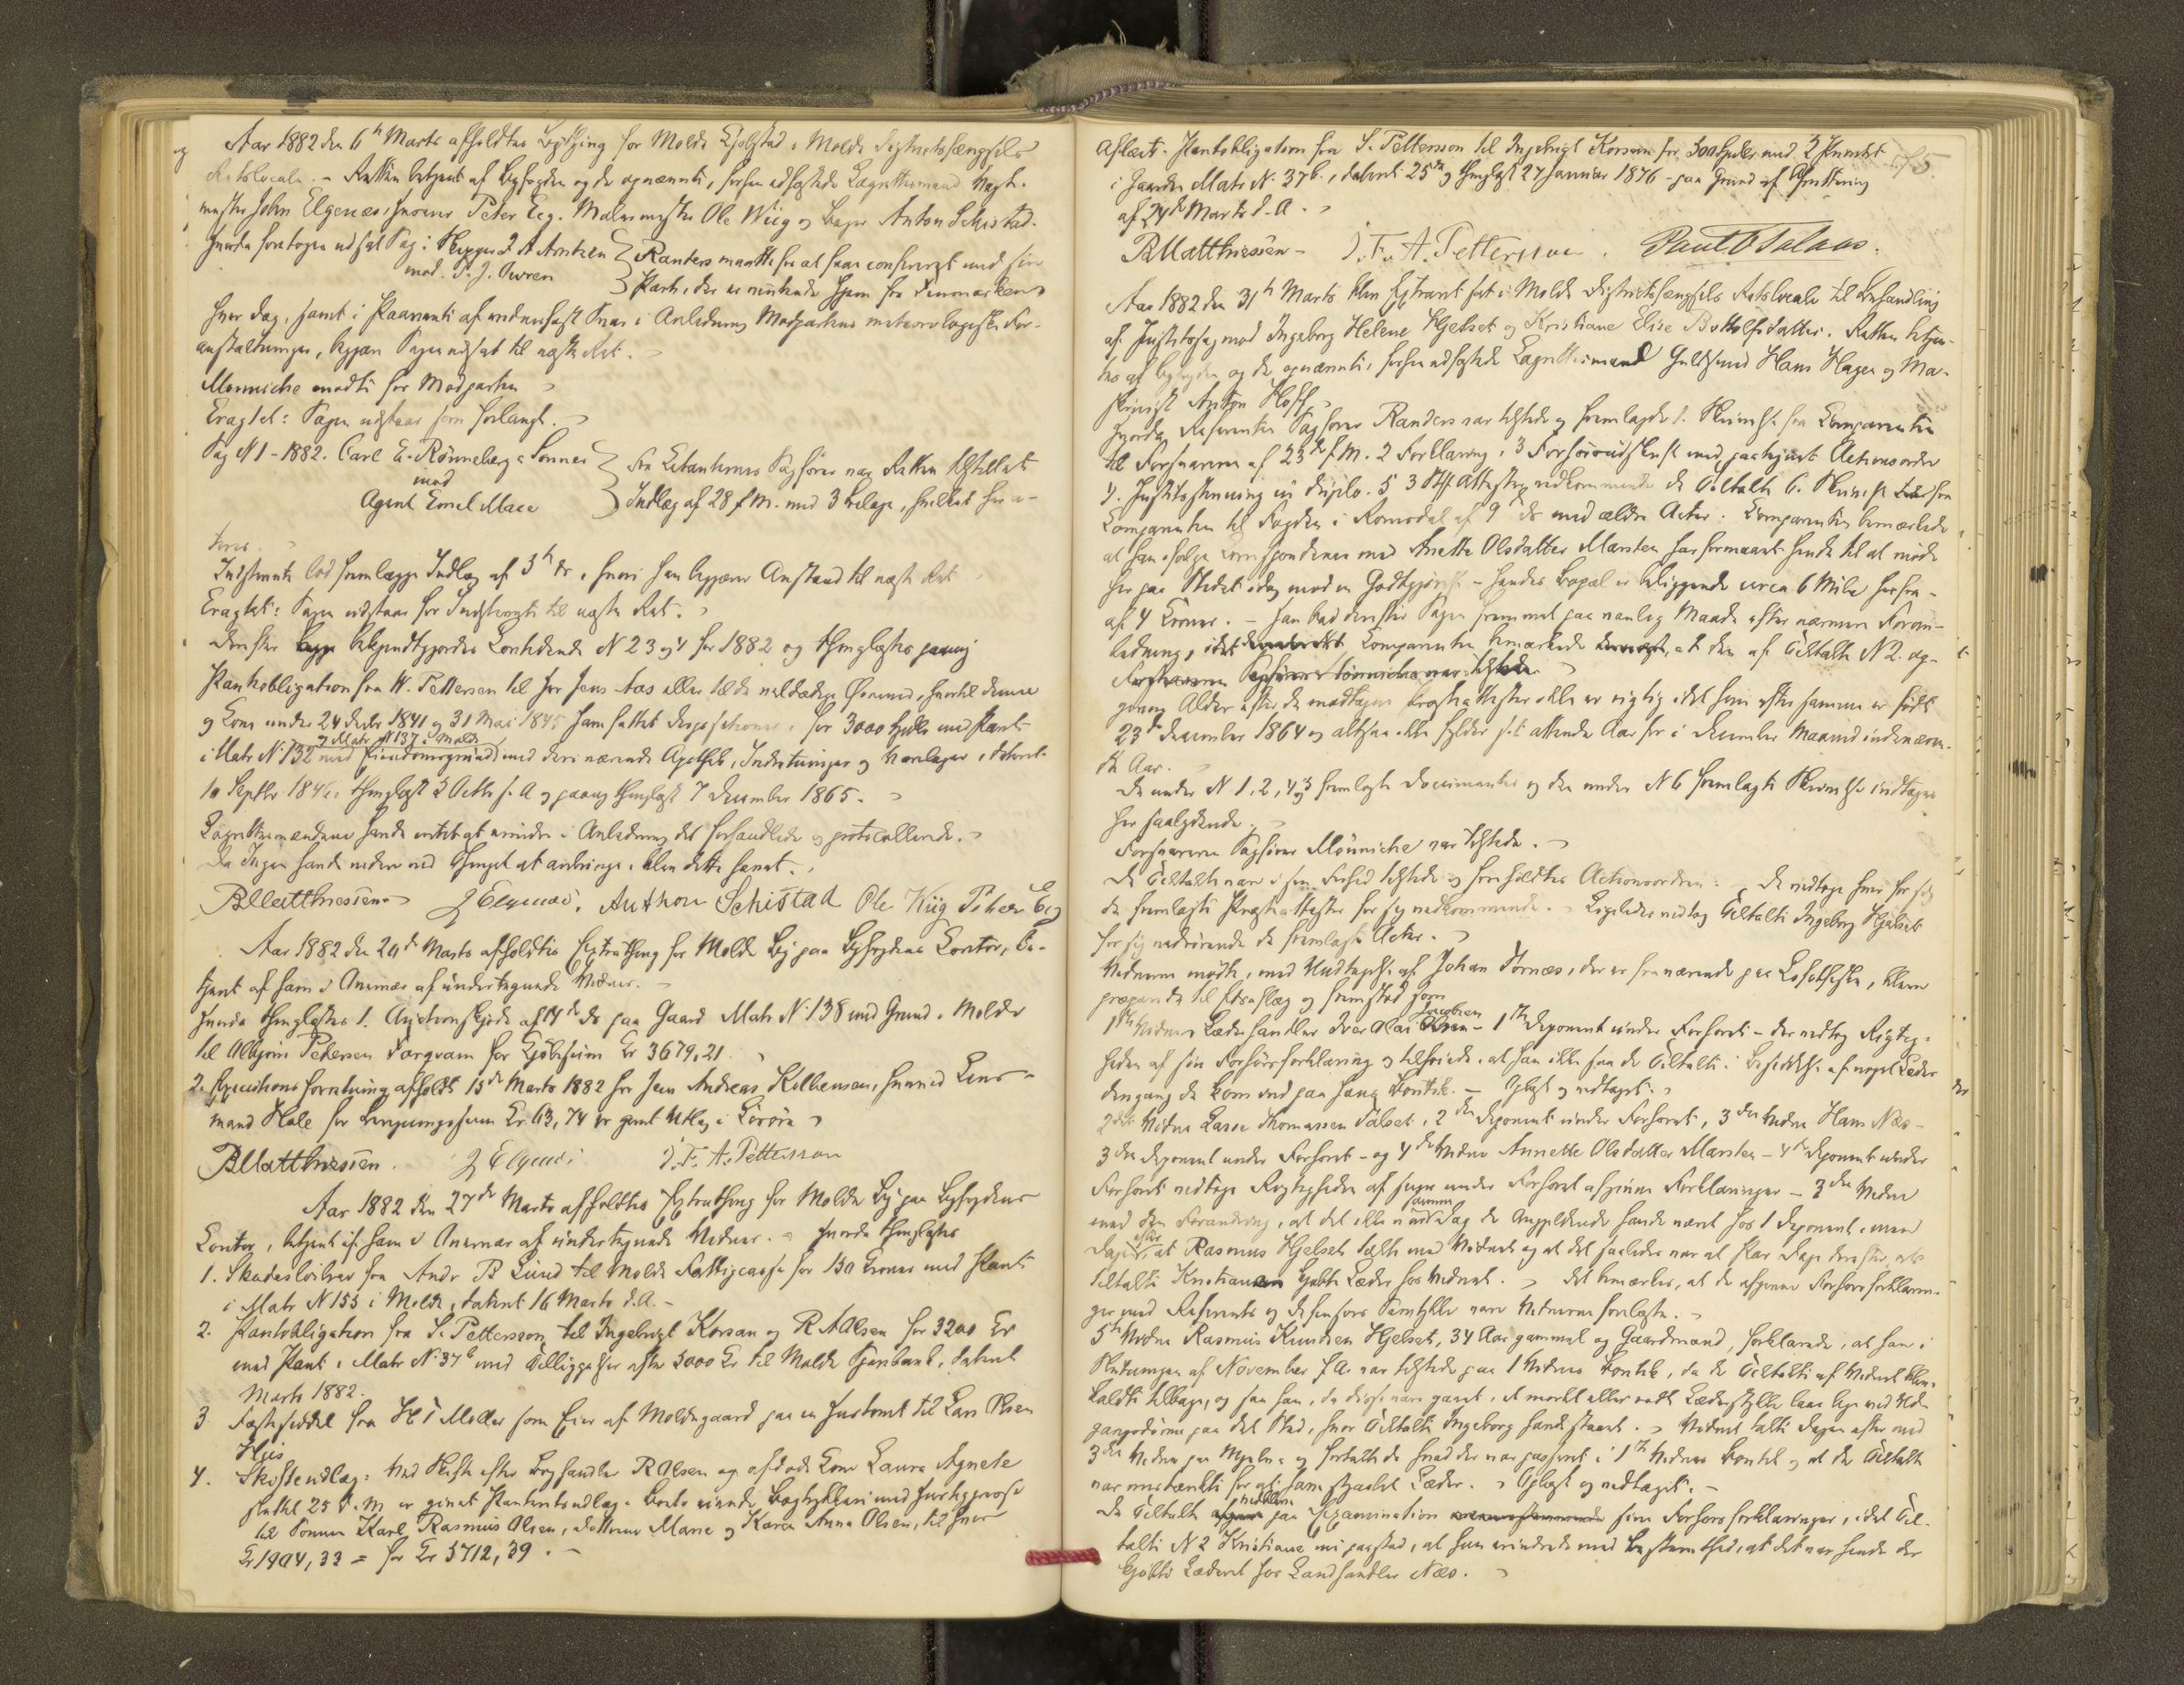 Aar 1882 den 6te Marts afholdtes Bything for Molde Kjøbstad i Molde Districtsfængsels
Retslocale. – Retten betjent af Byfogden og de opnævnte, forhen edfæstede Laugrettesmænd
mester John Elgenes, Peter Eeg, Malermester Ole Wiig og Bager Anton Schistad.
Hvorda foretoges udsat Sag: Skipper J. A. Arntzen
mod P. J. Owren
Randers maatte for at faae confereret med sin
Part, der er ventende hjem fra Danmarken
hver Dag, samt i Paavente af endnu Svar i Anledning Modpartens meteorologiske For-
anstaltninger, begjære Sagen udsat til næste Ret.
Mønniche mødte for Modparten
Eragtet: Sagen udstaar som forlangt.
Sag N 1 – 1882. Carl E. Rønneberg & Sønner
mod
Agent Emil Mace
Fra Citanternes Sagfører var Retten tilstillet
Indlæg af 28 f. M. med 3 Bilage, hvilket
Indstevnte lod fremlægge Indlæg af 3die ds, hvori han begjærer Anstand til næste Ret
Eragtet: Sagen udstaar for Indstevnte til næste Ret.
Derefter bekjendtgjordes Lovtidende N 2 3 og 4 for 1882 og thinglæstes paany
Pantobligation fra W. Pettersen til Jens Aas eller til de
24 Decbr 1841 og 31 Mai 1845 for 3000 Spdlr med Pant
og Matr N 137 i Molde
i Matr N 132 med Eiendomsgrund med deri værende Apothek, Indretninger og Varelager, dateret
10 Septbr 1846, thinglæst 3 Octbr s. A. og paany thinglæst 7 December 1865.
Laugrettesmændene havde intet at erindre i Anledning det forhandlede og protocollerede.
Da Ingen havde videre ved Thinget at anbringe, blev dette hævet.
B Matthiessen J Elgenes. Anthon Schistad Ole Wiig Peter Eeg
Aar 1882 den 20de Marts afholdtes Extrathing for Molde By paa Byfogdens Contor, be-
tjent af ham i Overvær af undertegnede Vidner.
Hvorda thinglæstes 1. Auctionsskjøde af 14de ds paa Gaard Matr N 138 med Grund i Molde
til Albjørn Pedersen Vorgvam for Kjøbesum Kr 3679,21
2. Executionsforretning afholdt 15de Marts 1882 hos Jens Andreas Kellmann, hvorved Lens-
mand Hole for Kr 63,74 er givet Udlæg i Løsøre
B Matthiessen. J Elgenes J. F. A. Petterson
Aar 1882 den 27de Marts afholdtes Extrathing for Molde By paa Byfogdens
Contor, betjent af ham i Overvær af undertegnede Vidner. – Hvorda thinglæstes
1. Skadesløsbrev fra Andr B Lund til Molde Fattigcasse for 130 Kroner med Pant
i Matr N 155 i Molde, dateret 16 Marts d. A. –
2. Pantobligation fra S. Pettersson til Ingebrigt Korsan og R A Olsen for 3200 Kr
med Pant i Matr N 37b med Tilliggelser efter 3000 Kr til Molde Sparebank, dateret
Marts 1882.
3 Fæsteseddel fra H T Møller som Eier af Moldegaard paa en Hustomt til Lars Olsen
Huus
4. Skifteudlæg: Ved Skifte efter Boghandler R Olsen og afdøde Kone Laura Agnete
sluttet 25 d. M. er givet Pante Udlæg i Boets
til Sønnen Karl Rasmus Olsen, Døttrene Marie og Karen Anna Olsen, til hver
Kr 1904,33 = for Kr 5712,39. –
75.
Aflæst: Pantobligation fra S. Pettersson til Ingebrigt Korsan for 300 Spdlr med 2 Prioritet
i Gaarden Matr N 37b, dateret 25de og thinglæst 27 Januar 1876 – paa Grund af Qvittering
af 24de Marts d. A.
B Matthiessen – J. F. A. Petterson. Paul O Talaas.
Aar 1882 den 31te Marts blev Extraret sat i Molde Districtsfængsels Retslocale til Behandling
af Justitssag mod Ingeborg Helene Hjelset og Kristiane Elise Bottolfsdatter. Retten betjen-
tes af Byfogden og de opnævnte, forhen edfæstede Laugrettesmænd Guldsmed Hans Hagen og Ma-
skinist Anton Hoff.
Hvorda Referenten Sagfører Randers var tilstede og fremlagde 1. Skrivelse fra Comparenten
til Forsvareren af 23de f. M. 2 Forklaring, 3 Forhørsudskrift med paategnet Actionsordre
4. Justitsstevning in duplo. 5 3 Stk Attester vedkommende de Tiltalte 6. Skrivelse fra
Comparenten til Fogden i Romsdal af 9de ds med ældre Acter. Comparenten bemærkede
at han ifølge Correspondence med Anette Olsdatter Marsten har formaaet hende til at møde
her paa Stedet idag mod en Godtgjørelse – hendes Bopæl er beliggende circa 6 Mile herfra –
af 4 Kroner. – Han bad derefter Sagen fremmet paa vanlig Maade efter nærmere Foran-
ledning, idet Comparenten bemærkede, at den af Tiltalte N 2. op-
givne Alder efter de modtagne Præsteattester ikke er rigtig idet hun efter samme er født
23de December 1864 og altsaa ikke fylder sit attende Aar før i December Maaned indeværen-
de Aar.
De under N 1, 2, 4, 3 fremlagte Documenter og den under N 6 fremlagte Skrivelse indtages
her saalydende:
Forsvareren Sagfører Mønniche var tilstede.
De Tiltalte vare i fri Forfatning tilstede og foreholdtes Actionsordren. De vedtoge hver for sig
de fremlagte Præsteattester for sig vedkommende. Ligeledes vedtog Tiltalte Ingeborg Hjelset
for sig vedrørende de fremlagte Acter.
Vidnerne mødte, med Undtagelse af Johan Tornæs, der er fraværende paa Lofotfiske, bleve
præparerede til Edsaflæg og fremstod som
Jacobsen
1ste Vidne Læderhandler Iver Kai – 1ste Deponent under Forhøret – der vedtog Rigtig-
heden af sin Forhørsforklaring og tilføiede, at han ikke saa de Tiltalte i Besiddelse af noget Læder
dengang de kom ind paa hans Boutik. – Oplæst og vedtaget.
2det Vidne Lasse Thomassen Dalset, 2den Deponent under Forhøret, 3die Vidne Hans Næs –
3die Deponent under Forhøret – og 4de Vidne Annette Olsdatter Marsten – 4de Deponent under
Forhøret vedtoge Rigtigheden af sine under Forhøret afgivne Forklaringer – 3die Vidne
samme
med den Forandring, at det ikke var Dag de Angjeldende havde været hos 1 Deponent, men
efter
Dagen at Rasmus Hjelset talte med Vidnet og at det saaledes var et Par Dage derefter, at
Tiltalte Kristiane kjøbte Læder hos Vidnet. Det bemærkes, at de afgivne Forhørsforklarin-
ger med Referents og Defensors Samtykke vare Vidnerne forelæste.
5te Vidne Rasmus Knudsen Hjelset, 34 Aar gammel og Gaardmand, forklarede, at han i
Slutningen af November f. A. var tilstede paa 1 Vidnes Boutik, da de Tiltalte af Vidnet blev
kaldte tilbage, og saa han, da disse vare gaaet, et mørkt eller rødt Læderstykke laae lige ved Ud-
gangsdøren paa det Sted, hvor Tiltalte Ingeborg havde staaet. Vidnet talte Dagen efter med
3die Vidne paa Mjelve og fortalte da hvad der var passeret i 1ste Vidnes Boutik og at de Tiltalte
var mistænkte for at have stjaalet Læder. Oplæst og vedtaget. –
vedbleve
De Tiltalte paa Examination sine Forhørsforklaringer, idet Til-
talte N 2 Kristiane nu paastod, at hun erindrede med Bestemthed, at det var hende der
kjøbte Læderet hos Landhandler Næs.